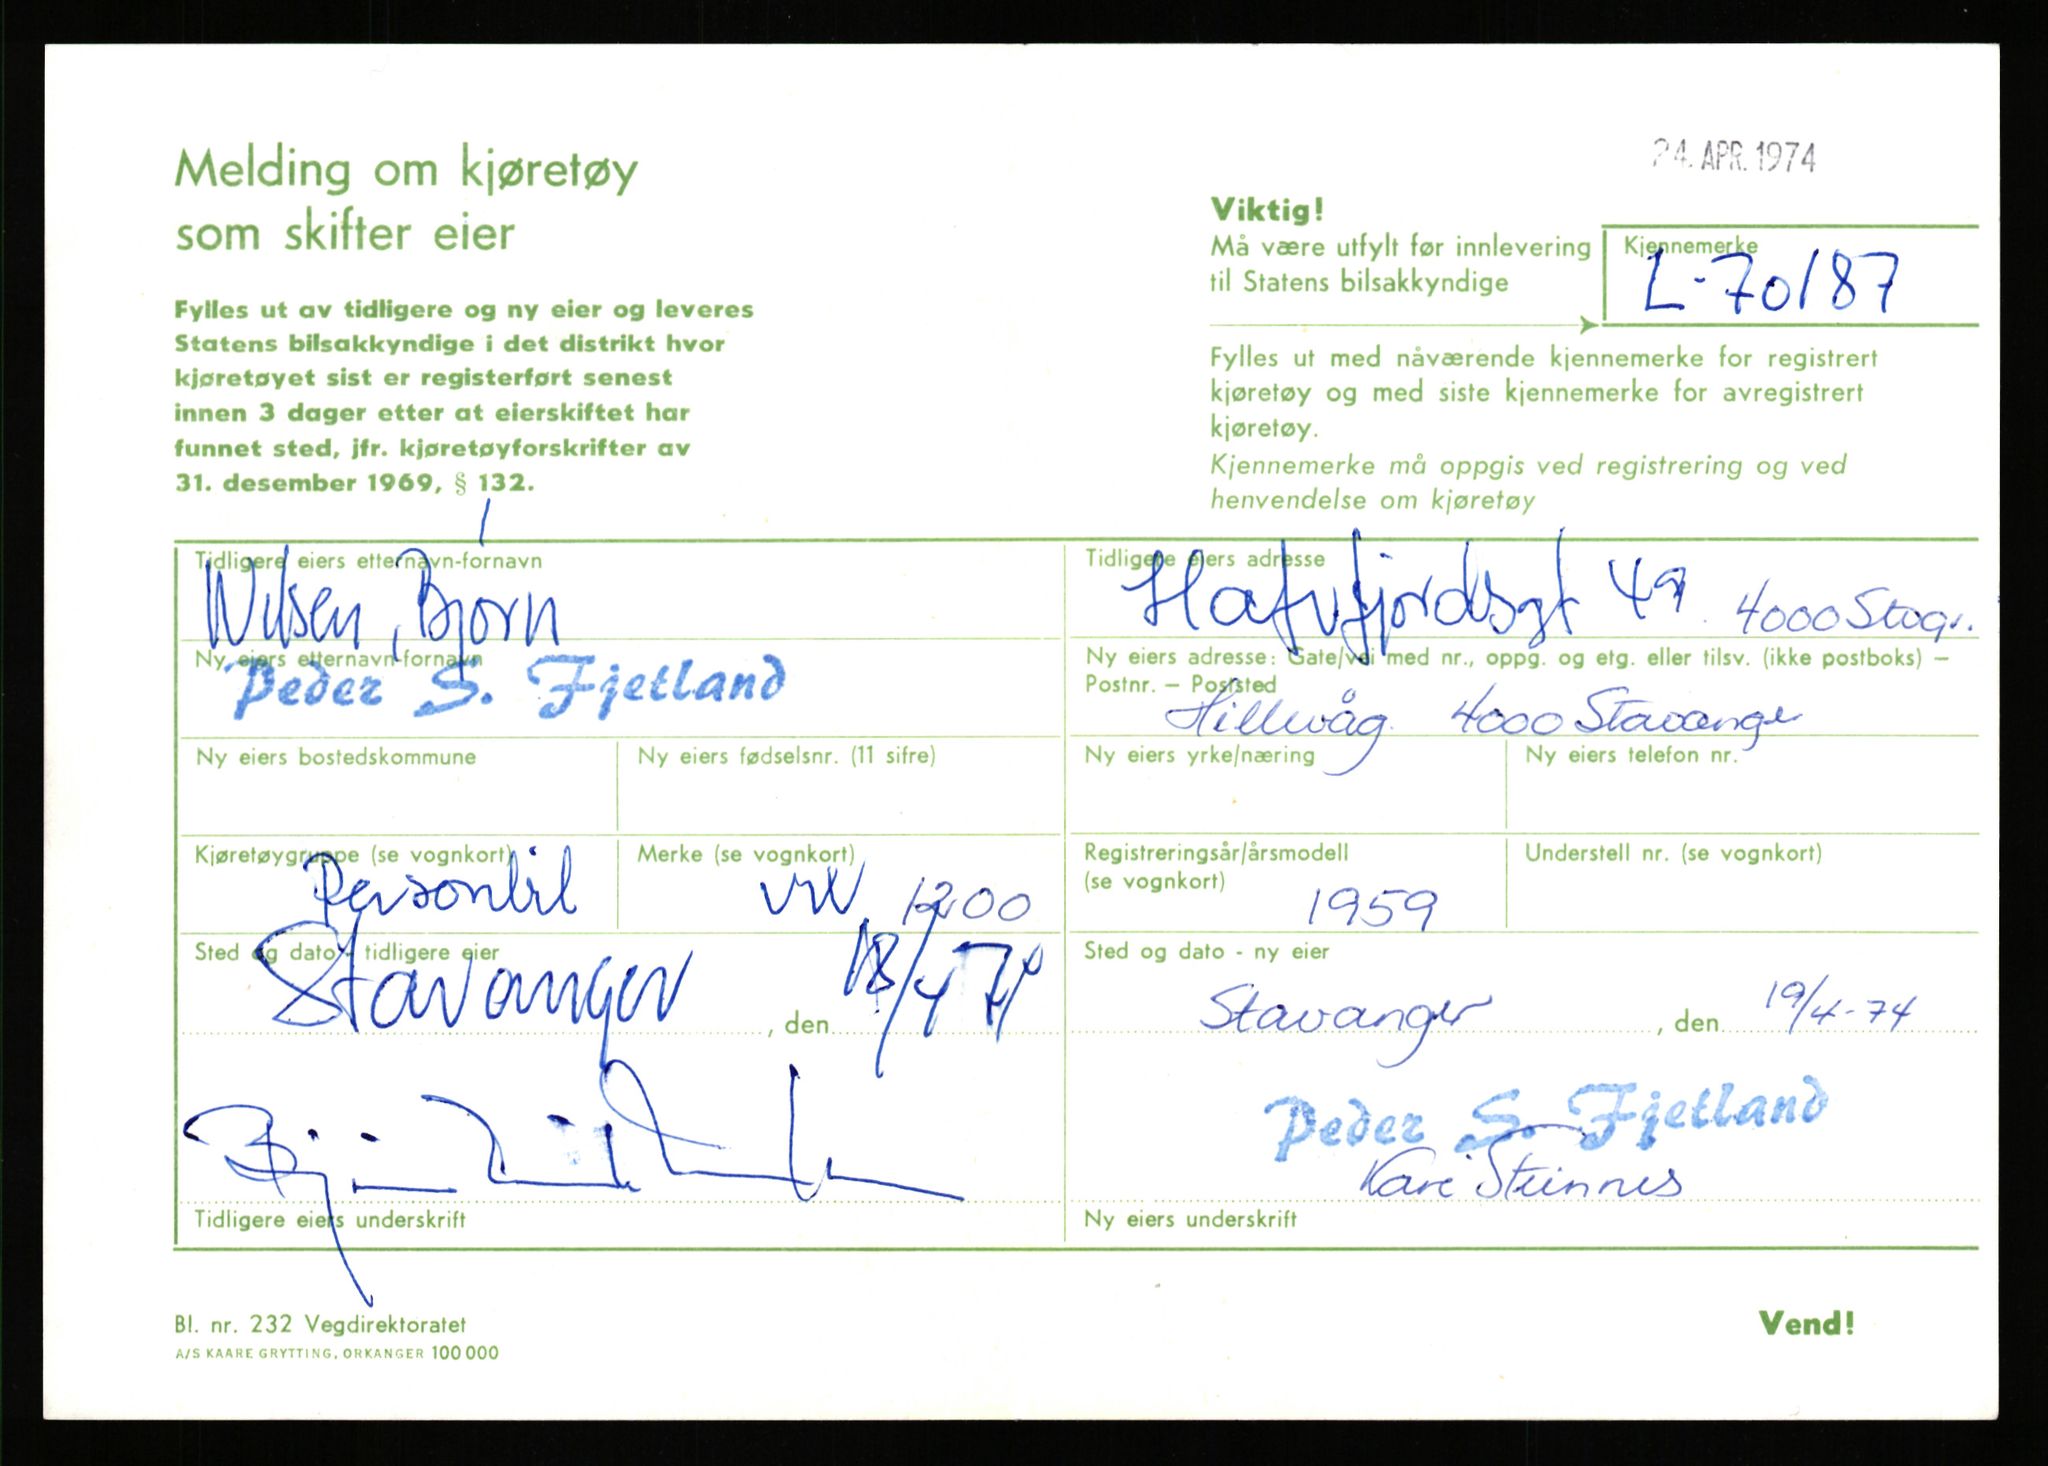 24. APR. 1974
Melding om kjøretøy
som skifter eier
Fylles ut av tidligere og ny eier og leveres
Statens bilsakkyndige i det distrikt hvor
kjøretøyet sist er registerført senest
innen 3 dager etter at eierskiftet har
funnet sted, jfr. kjøretøyforskrifter av
31. desember 1969, § 132.
Viktig!
Må være utfylt før innlevering
til Statens bilsakkyndige
Kjennemerke
L-70187
Fylles ut med nåværende kjennemerke for registrert
kjøretøy og med siste kjennemerke for avregistrert
kjøretøy.
Kjennemerke må oppgis ved registrering og ved
henvendelse om kjøretøy
Tidligere eiers etternavn-fornavn
Nilsen, Bjørn
Tidligere eiers adresse
Hafrsfjordsgt 49 4000 Stvgr.
Ny eiers etternavn-fornavn
Peder S. Fjetland
Ny eiers adresse: Gate/vei med nr., oppg. og etg. eller tilsv. (ikke postboks) –
Postnr. – Poststed
Hillevåg 4000 Stavanger
Ny eiers bostedskommune
Ny eiers fødselsnr. (11 sifre)
Ny eiers yrke/næring
Ny eiers telefon nr.
Kjøretøygruppe (se vognkort)
Personbil
Merke (se vognkort)
VW 1200
Registreringsår/årsmodell
(se vognkort)
1959
Understell nr. (se vognkort)
Sted og dato - tidligere eier
Stavanger, den 18/4 74
Sted og dato - ny eier
Stavanger, den 19/4-74
Tidligere eiers underskrift
Peder S. Fjetland
Kari Steinnes
Ny eiers underskrift
Bl. nr. 232 Vegdirektoratet
A/S KAARE GRYTTING, ORKANGER 100 000
Vend!